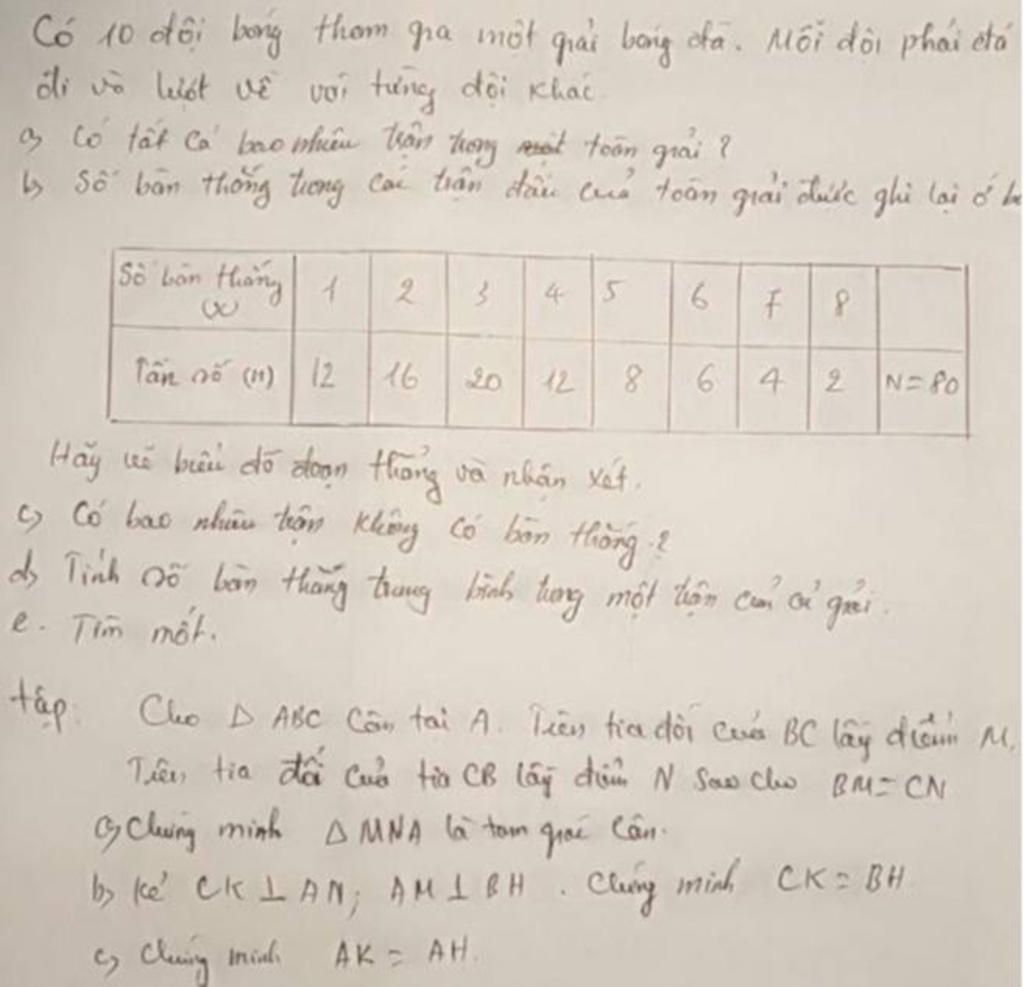 Có 10 đội bóng tham gia một giải bóng đá. Mỗi đội phải đá
đi và lượt về với từng đội khác
a) Có tất cả bao nhiêu trận trong toàn giải?
b) Số bàn thắng trong các trận đấu của toàn giải được ghi lại ở
Số bàn thắng (x) 1 2 3 4 5 6 7 8
Tần số (n) 12 16 20 12 8 6 4 2 N = 80
Hãy vẽ biểu đồ đoạn thẳng và nhận xét.
c) Có bao nhiêu trận không có bàn thắng?
d) Tính số bàn thắng trung bình trong một trận của cả giải.
e. Tìm mốt.
tập. Cho Δ ABC cân tại A. Trên tia đối của BC lấy điểm M.
Trên tia đối của tia CB lấy điểm N sao cho BM = CN
a) Chứng minh Δ MNA là tam giác cân.
b) Kẻ CK ⊥ AN; AM ⊥ BH. Chứng minh CK = BH
c) Chứng minh AK = AH.